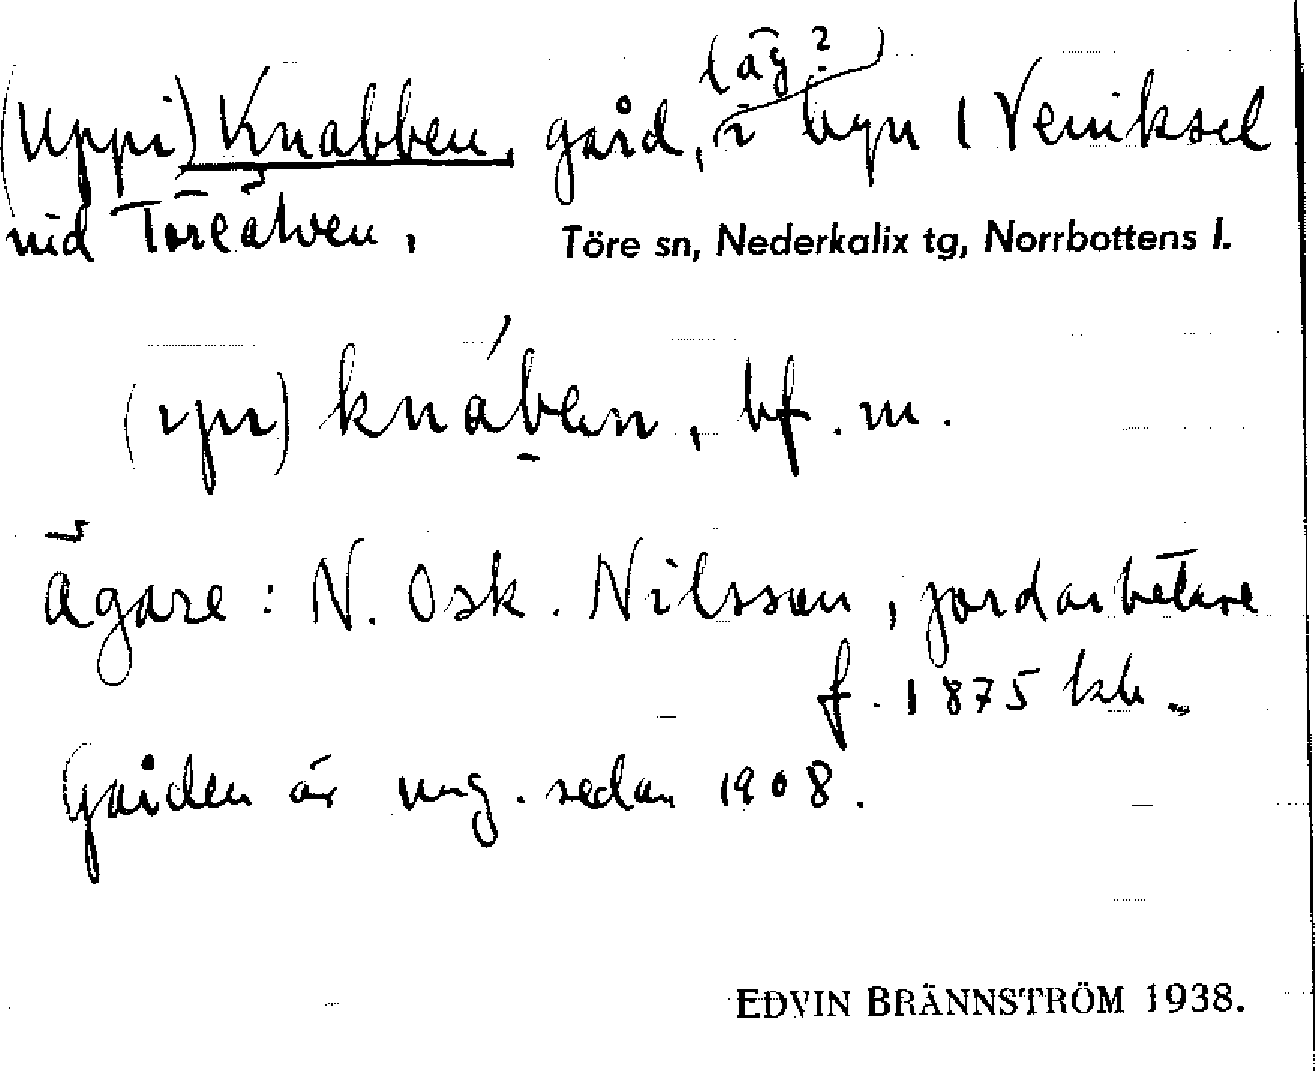 (äg?)
(Uppi) Knabben, gård, i byn 1 Veniksel
vid Töreälven.
Töre sn, Nederkalix tg, Norrbottens l.
knáben, bf. m.
Ägare: N. Osk. Nilsson, jordarbetare
f. 1875
Gården är ung. sedan 1908.
EDVIN BRÄNNSTRÖM 1938.